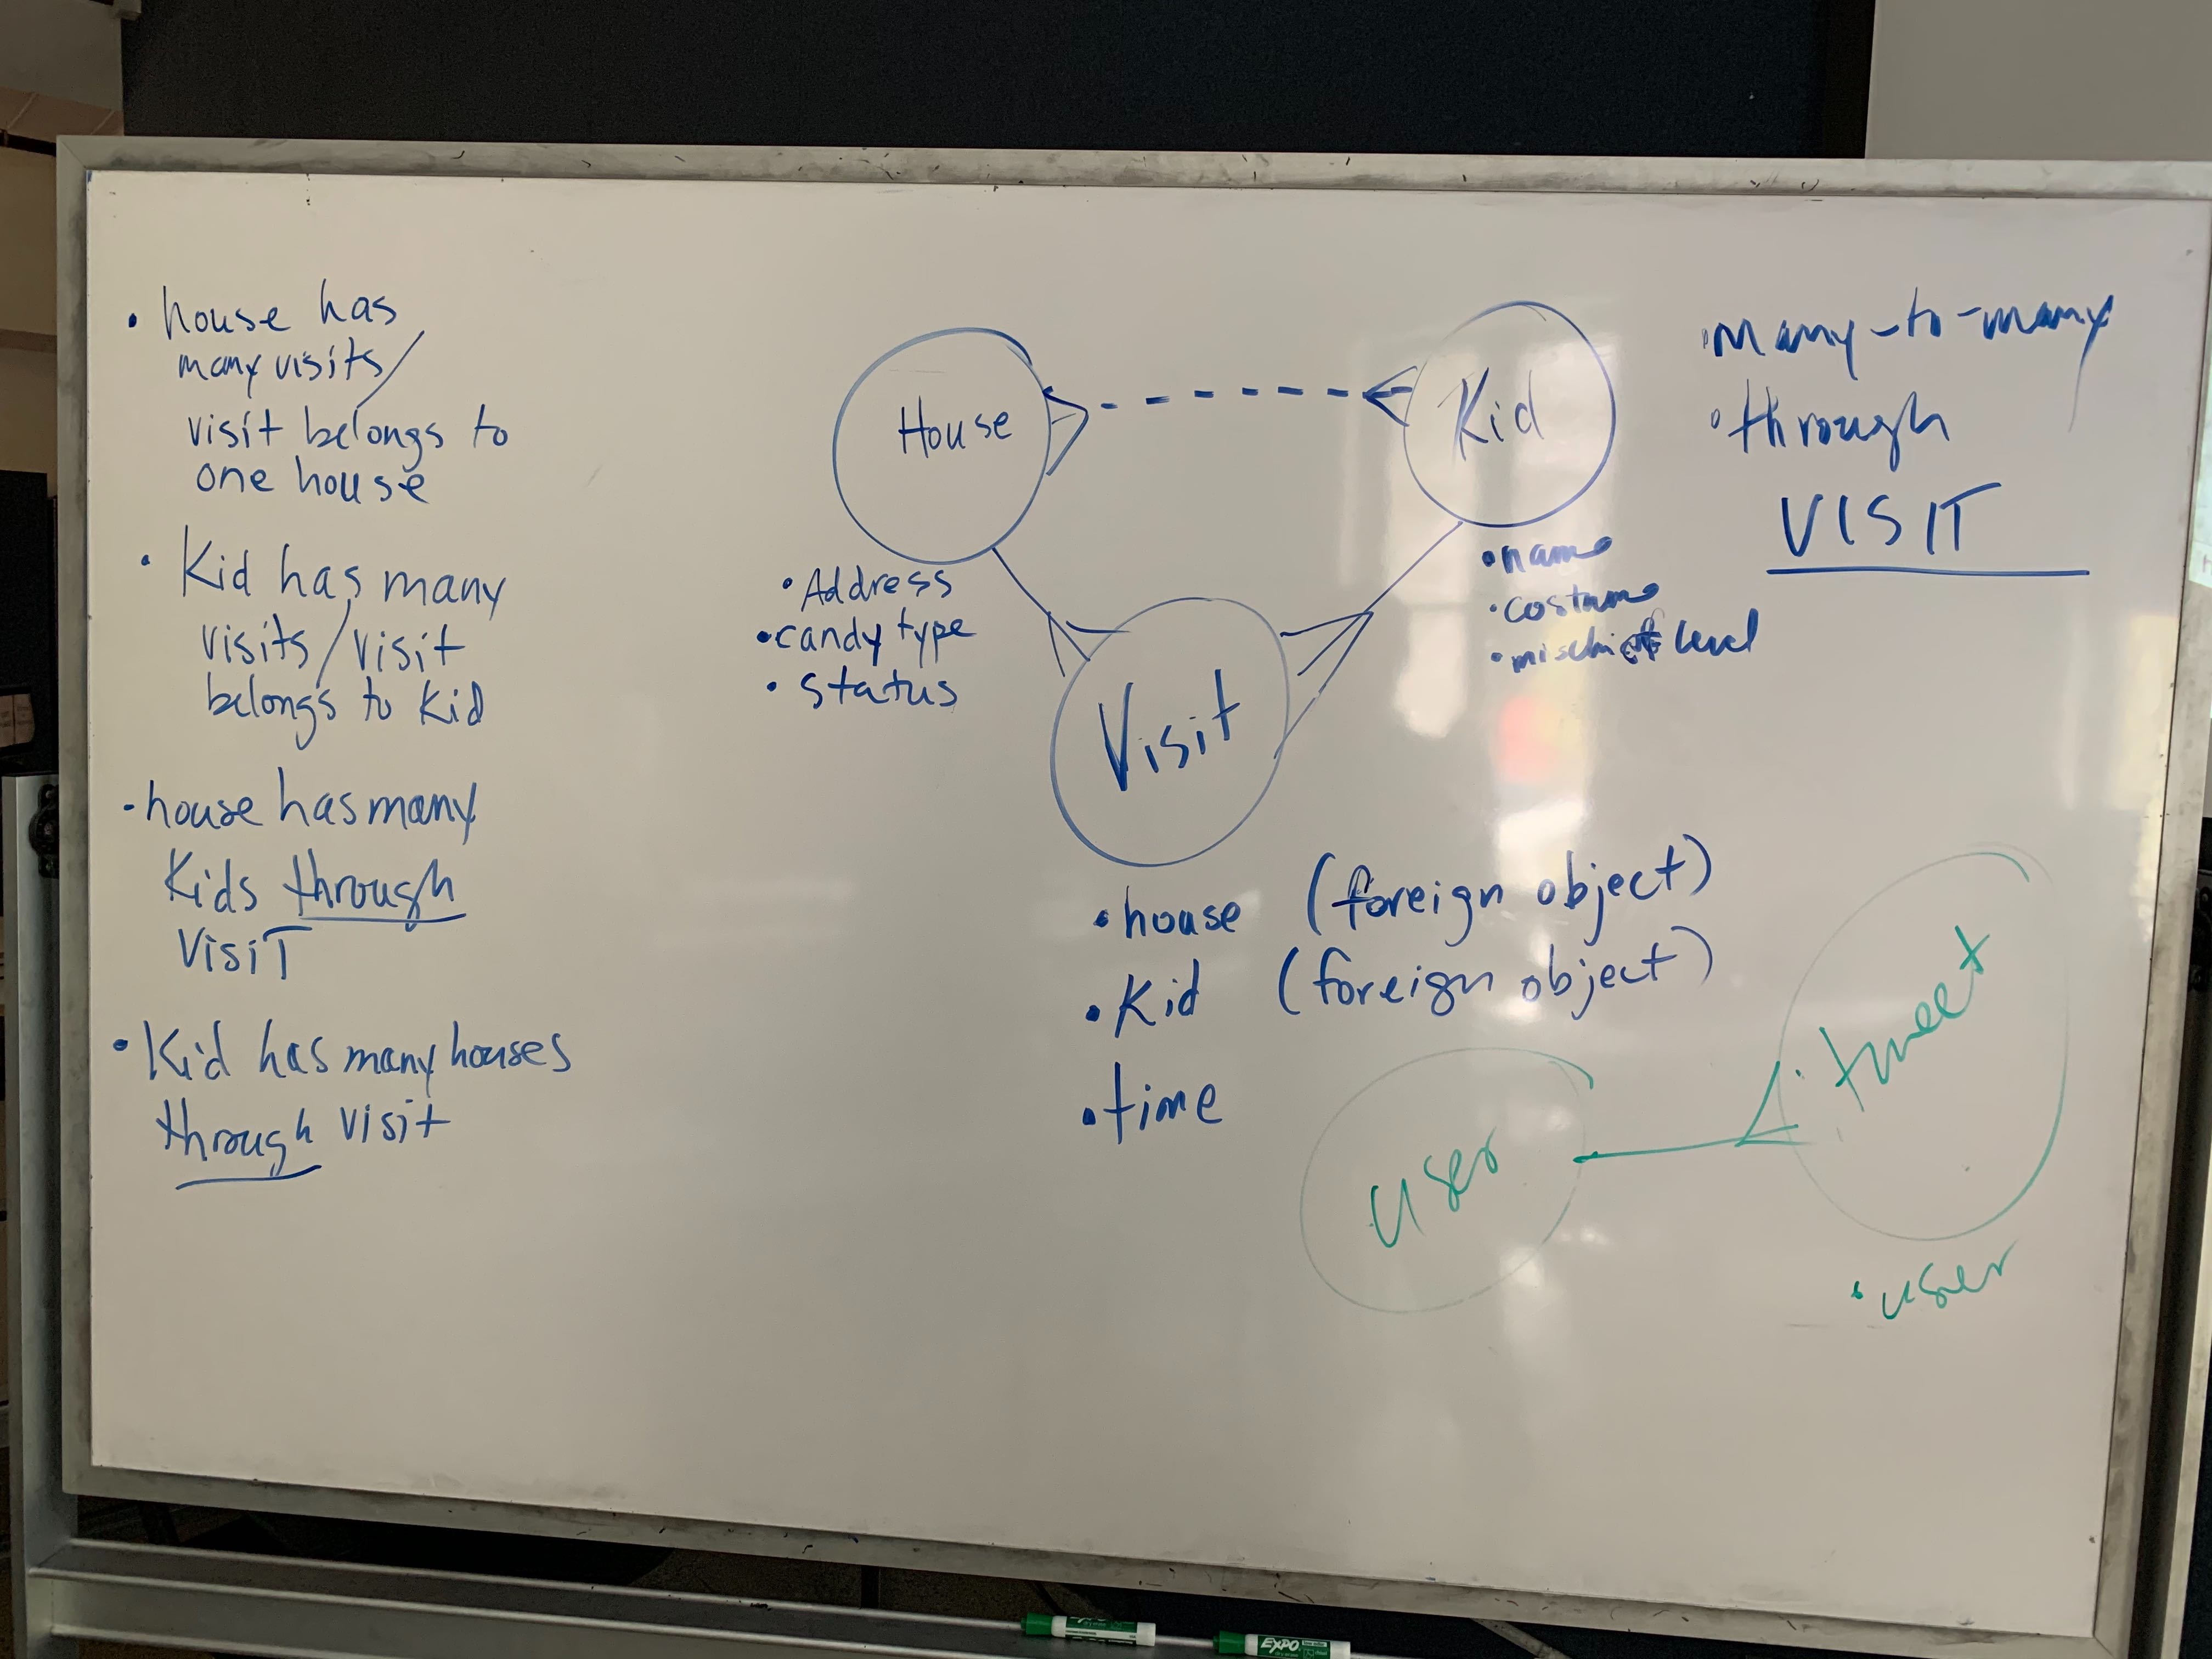 • house has
many visits/
visit belongs to
one house
• Kid has many
visits/visit
belongs to Kid
- house has many
Kids through
VisiT
• Kid has many houses
through visit
House
Kid
• Address
• candy type
• Status
• name
• costume
• mischief level
Visit
• house (foreign object)
• Kid (foreign object)
• time
• many-to-many
• through
VISIT
user
tweet
• user
EXPO